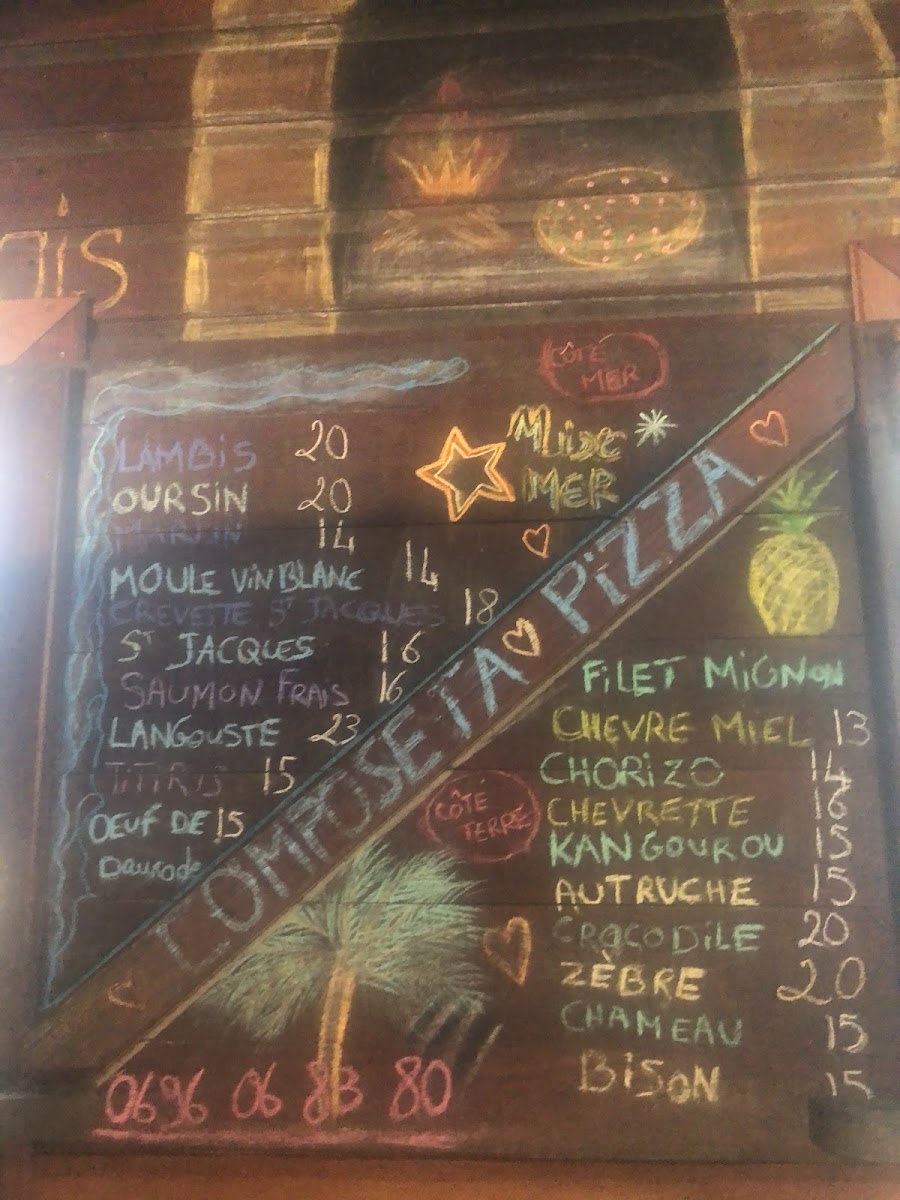 CÔTÉ
MER
MIX
MER
LAMBIS 20
OURSIN 20
MARLIN 14
MOULE VIN BLANC 14
CREVETTE ST JACQUES 18
ST JACQUES 16
SAUMON FRAIS 16
LANGOUSTE 23
TITIRIS 15
OEUF DE 15
Daurade
COMPOSE TA PIZZA
CÔTÉ
TERRE
FILET MIGNON
CHEVRE MIEL 13
CHORIZO 14
CHEVRETTE 16
KANGOUROU 15
AUTRUCHE 15
CROCODILE 20
ZEBRE 20
CHAMEAU 15
BISON 15
0696 06 83 80